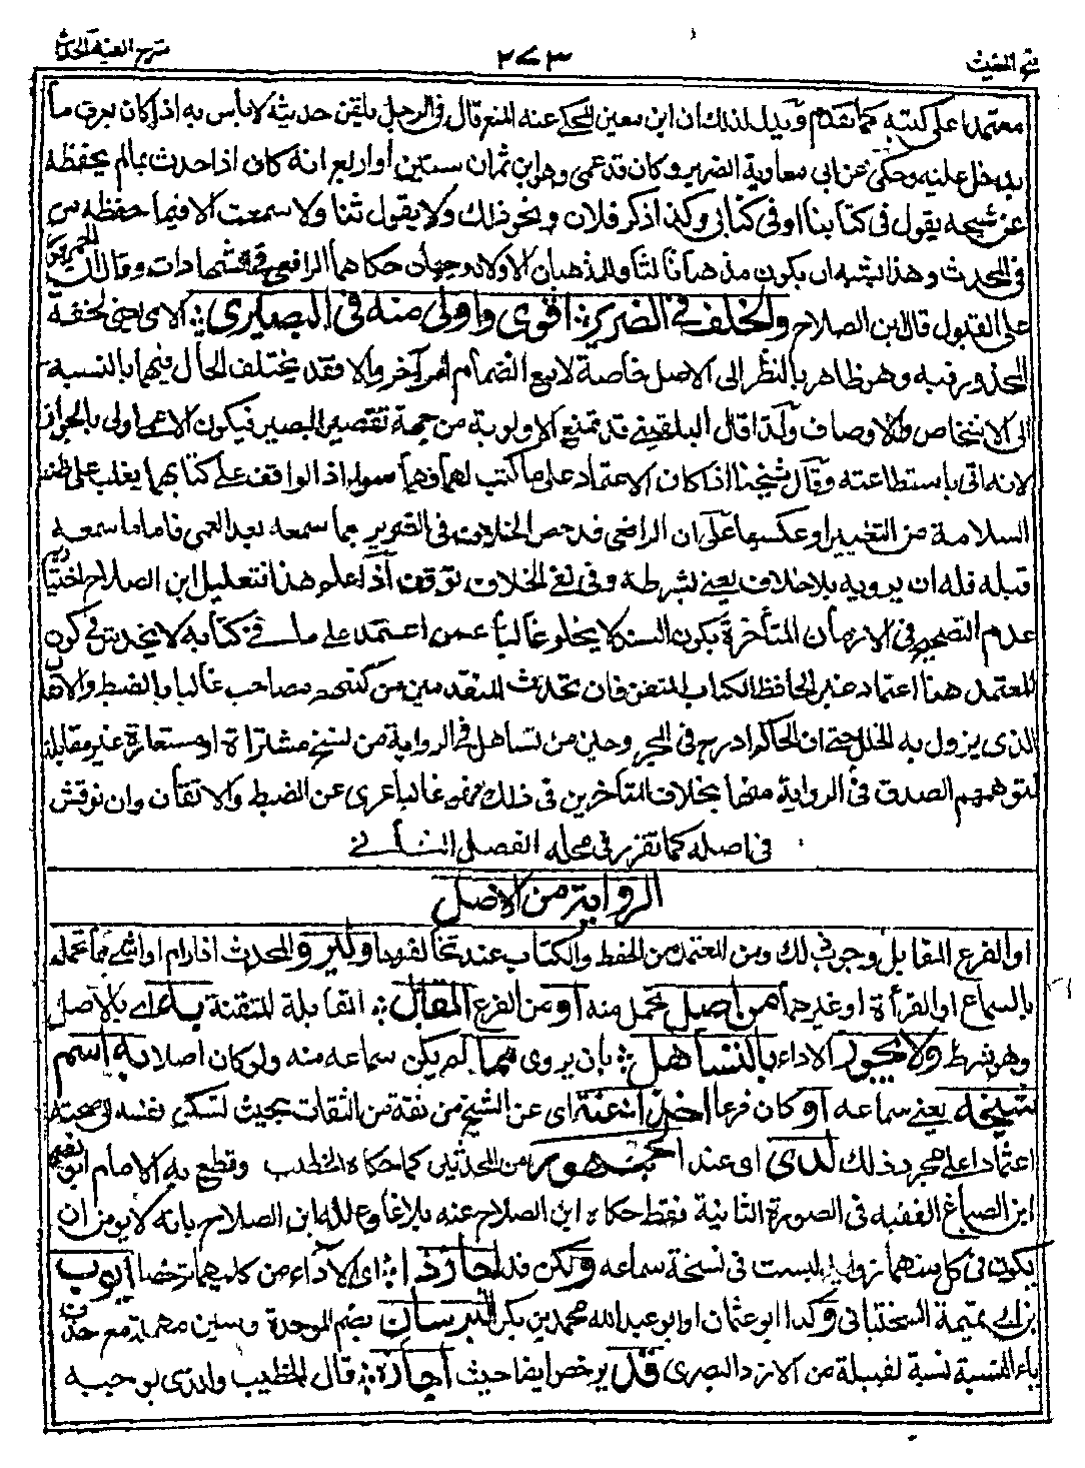 فتح المغيث
٢٧٣
شرح الفية الحديث
معتمدا على كتبه كما تقدم ويدل لذلك ان ابن معين المحكي عنه المنع قال في الرجل يلقن حديثه لا بأس به اذا كان يعرف ما
يدخل عليه وحكى عن ابي معاوية الضرير وكان قد عمي وهو ابن ثمان سنين او اربع انه كان اذا حدث بما لم يحفظه
عن شيخه يقول في كتابنا او في كتابي وكذا ذكر فلان ونحو ذلك ولا يقول ثنا ولا سمعت الا فيما حفظه من
في المحدث وهذا يشبه ان يكون مذهبا ثالثا والمذهبان الاولان وجهان حكاهما الرافعي في الشهادات وقال ان الجمهور
على القبول قال ابن الصلاح والخلف في الضرير اقوى واولى منه في البصير الامي لخفة
المحذور فيه وهو ظاهر بالنظر الى الاصل خاصة لا مع انضمام امر آخر والا فقد يختلف الحال فيهما بالنسبة
الى الاشخاص والاوصاف وكذا قال البلقيني قد تمنع الاولوية من جهة تقصير البصير فيكون الاعمى اولى بالجواز
لانه اتى باستطاعته وقال شيخنا اذا كان الاعتماد على ما كتب لهما فهما سواء اذ الواقف على كتابهما يغلب على ظنه
السلامة من التغيير او عكسها على ان الرافعي قد خص الخلاف في الضرير بما سمعه بعد العمى فاما ما سمعه
قبله فله ان يرويه بلا خلاف يعني بشرطه وفي نفي الخلاف توقف اذا علم هذا فتعليل ابن الصلاح اختياره
عدم التصحيح في الازمان المتأخرة بكون السند لا يخلو غالبا عمن اعتمد على ما في كتابه لا يخدش في كون
المعتمد هنا اعتماد غير الحافظ الكتاب المتقن فان تحديث المتقدمين من كتبهم مصاحب غالبا بالضبط والاتقان
الذي يزول به الخلل حتى ان الحاكم ادرج في المجروحين من تساهل في الرواية من نسخ مشتراة او مستعارة غير مقابلة
لتوهمهم الصدق في الرواية منها بخلاف المتأخرين في ذلك فهو غالبا عري عن الضبط والاتقان وان نوقش
في اصله كما تقرر في محله الفصل الثاني
الرواية من الاصل
او الفرع المقابل وجوب ذلك ومن المعتمد من الحفظ والكتاب عند تخالفهما ولير والمحدث اذا رام اداء شيء مما تحمله
بالسماع او القراءة او غيرهما من اصل تحمل منه او من الفرع المقابل المقابلة المتقنة به اي بالاصل
وهو شرط ولا يجوز الاداء بالتساهل بان يروى مما لم يكن سماعه منه ولو كان اصلا به اسم
شيخه يعني سماعه او كان فرعا اخذ عنه اي عن الشيخ من ثقة من الثقات بحيث تسكن نفسه لصحته
اعتمادا على مجرد ذلك لدى اي عند الجمهور من المحدثين كما حكاه الخطيب وقطع به الامام ابو نصر
ابن الصباغ الفقيه في الصورة الثانية فقط حكاه ابن الصلاح عنه بلاغا وعلله ابن الصلاح بانه لا يؤمن ان
يكون في كل منهما زوايد ليست في نسخة سماعه ولكن قد اجاز ذا اي الاداء من كليهما ترخصا ايوب
بن ابي تميمة السختياني وكذا ابو عثمان او ابو عبد الله محمد بن بكر البرسان بضم الموحدة وسين مهملة مع حذف
ياء النسبة نسبة لقبيلة من الازد البصري قد ترخص ايضا حيث اجازه قال الخطيب والذي يوجبه